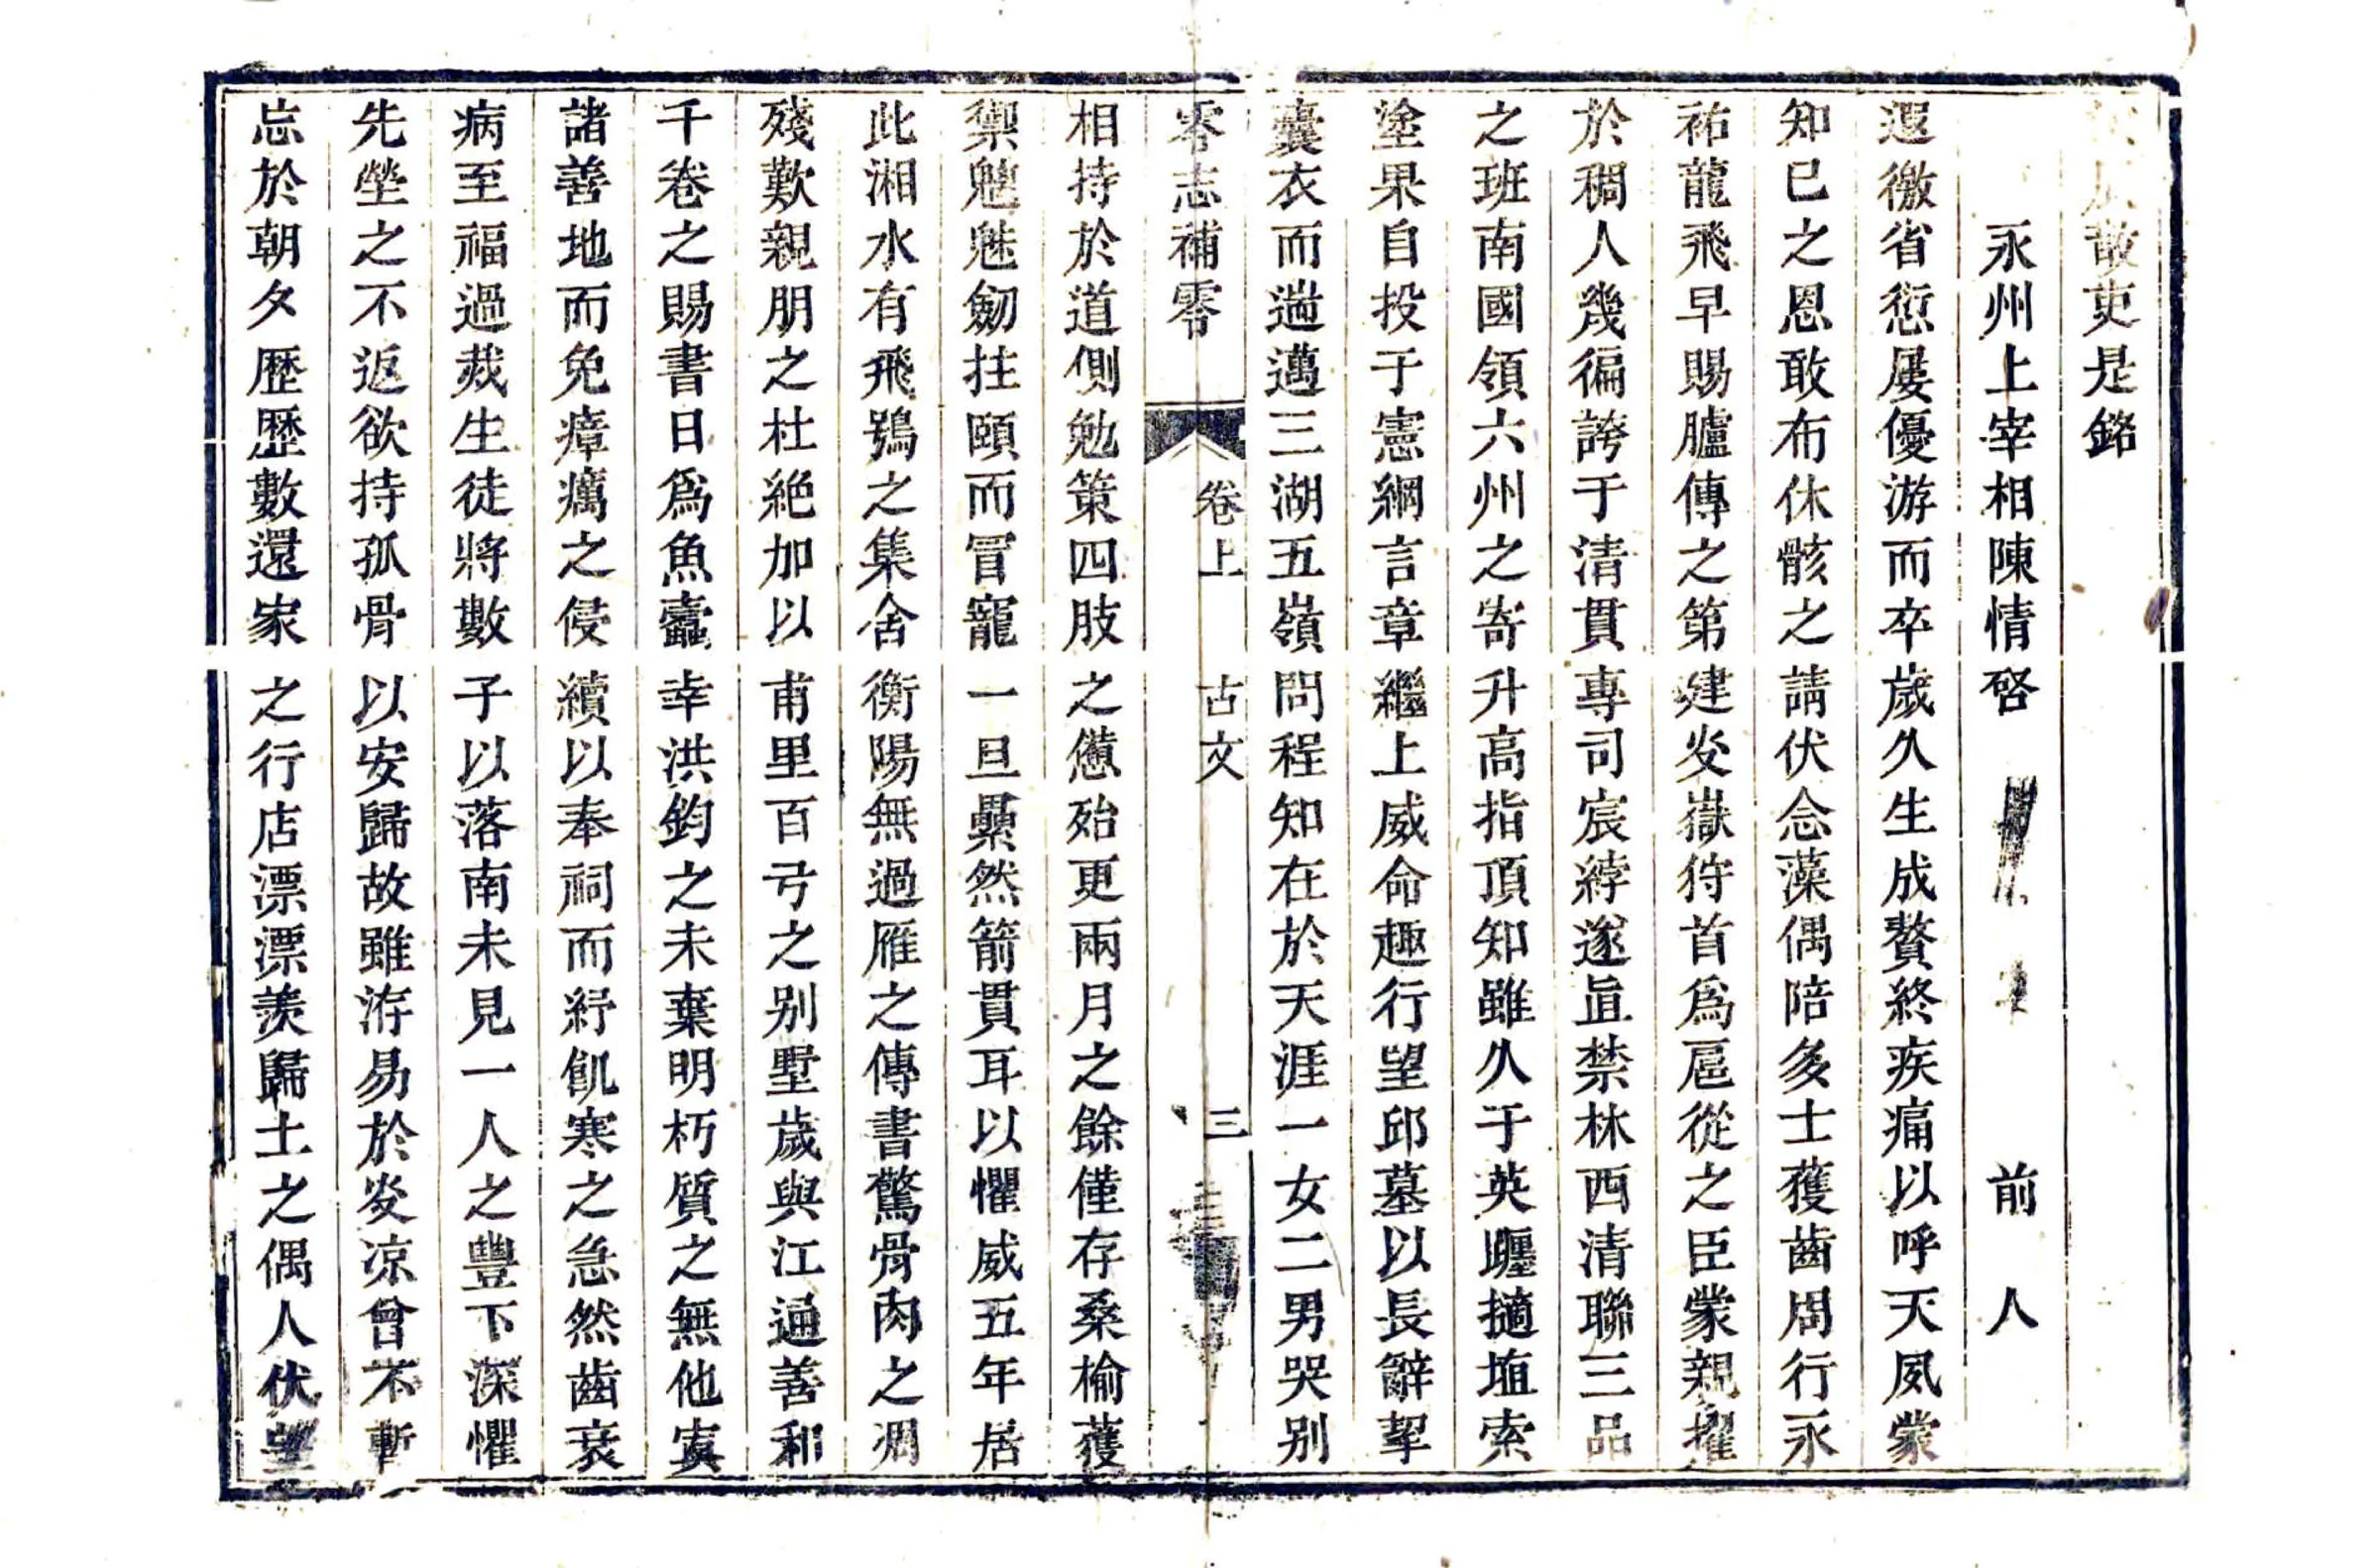 散吏是銘
永州上宰相陳情啓　前人
遐徼省愆屢優游而卒歲久生成贅終疾痛以呼天夙蒙
知已之恩敢布休骸之請伏念藻偶陪多士獲齒周行永
祐龍飛早賜臚傳之第建炎嶽狩首爲扈從之臣蒙親擢
於稠人幾徧誇于清貫專司宸綍遂直禁林西清聯三品
之班南國領六州之寄升高指頂知雖久于英躔擿埴索
塗果自投于憲綱言章繼上威命趣行望邱墓以長辭挈
囊衣而遄邁三湖五嶺問程知在於天涯一女二男哭别
零志補零　卷上　古文　三
相持於道側勉策四肢之憊殆更兩月之餘僅存桑榆獲
禦魑魅劒拄頤而冒寵一旦纍然箭貫耳以懼威五年居
此湘水有飛鴞之集舍衡陽無過雁之傳書驚骨肉之凋
殘歎親朋之杜絶加以甫里百弓之别墅歲與江通善和
千卷之賜書日爲魚蠹幸洪鈞之未棄明朽質之無他寘
諸善地而免瘴癘之侵續以奉祠而紓飢寒之急然齒衰
病至福過烖生徒將數子以落南未見一人之豐下深懼
先塋之不返欲持孤骨以安歸故雖洊易於炎凉曾不暫
忘於朝夕歷歷數還家之行店漂漂羨歸土之偶人伏望